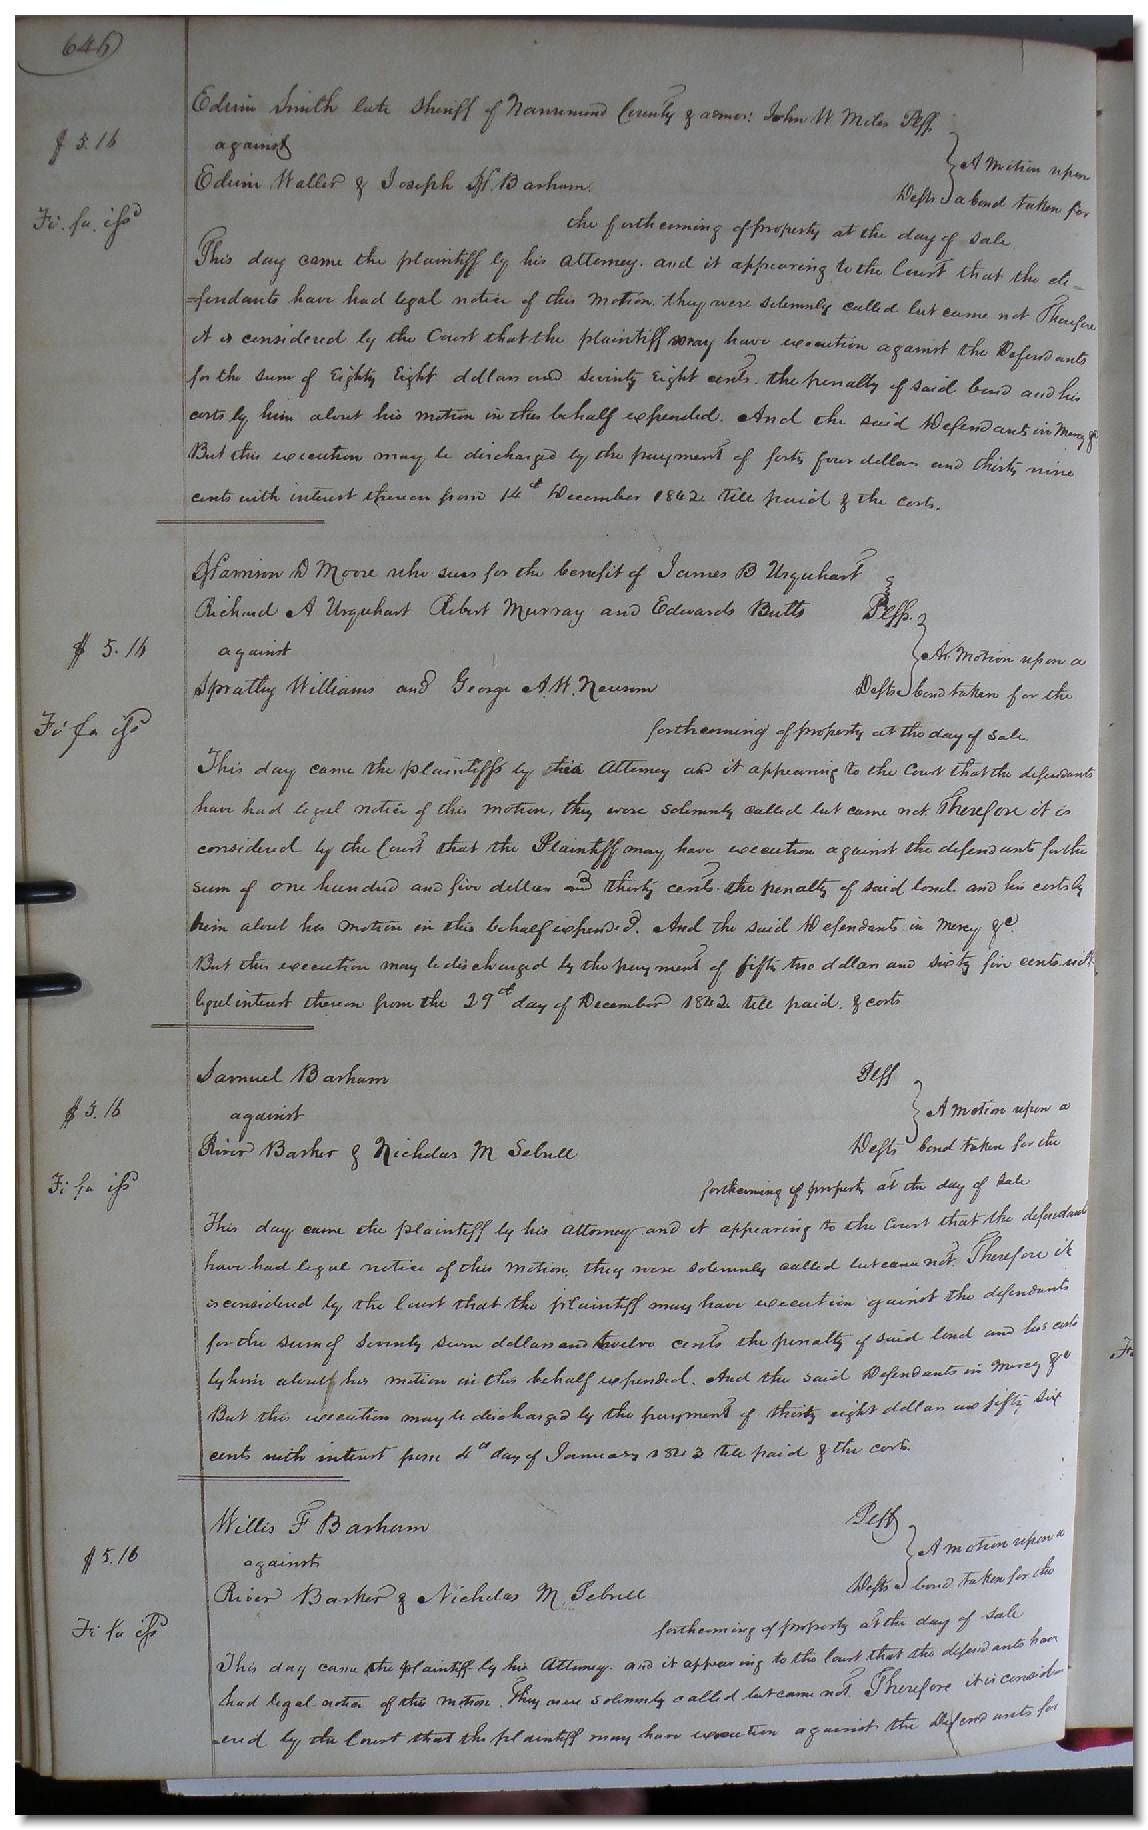 646
Edwin Smith late Sheriff of Nansemond County & admor: John W Miles Plff.
$ 5.16
against
A motion upon
Edwin Waller & Joseph H. Barham.
Defts a bond taken for
Fi. fa. issd
the forthcoming of property at the day of sale
This day came the plaintiff by his attorney. and it appearing to the Court that the de-
-fendants have had legal notice of this motion. they were solemnly called but came not Therefore
it is considered by the Court that the plaintiff may have execution against the Defendants
for the sum of Eighty Eight dollars and seventy Eight cents. the penalty of said bond and his
costs by him about his motion in this behalf expended. And the said Defendants in Mercy &c
But this execution may be discharged by the payment of forty four dollars and thirty nine
cents with interest thereon from 14th December 1842 till paid & the costs.
Harrison D Moore who sues for the benefit of James B Urquhart
Richard A Urquhart Robert Murray and Edwards Butts Plffs.
$ 5.16
against
A. Motion upon a
Spratley Williams and George A. W. Newsom
Defts bond taken for the
Fi fa issd
forthcoming of property at the day of sale
This day came the plaintiffs by their Attorney and it appearing to the Court that the defendants
have had legal notice of this motion, they were solemnly called but came not. Therefore it is
considered by the Court that the Plaintiff may have execution against the defendants for the
sum of one hundred and five dollars and thirty cents the penalty of said bond and his costs by
him about his motion in this behalf expended. And the said Defendants in Mercy &c
But this execution may be discharged by the payment of fifty two dollars and sixty five cents with
legal interest thereon from the 29th day of December 1842 till paid. & costs
Samuel Barham Plff
$ 5.16
against
A motion upon a
River Barker & Nicholas M Sebrell
Defts bond taken for the
Fi fa issd
forthcoming of property at the day of sale
This day came the plaintiff by his attorney and it appearing to the Court that the defendants
have had legal notice of this motion. they were solemnly called but came not. Therefore it
is considered by the Court that the plaintiff may have execution against the defendants
for the sum of seventy seven dollars and twelve cents the penalty of said bond and his costs
by him about his motion in this behalf expended. And the said Defendants in mercy &c
But this execution may be discharged by the payment of thirty eight dollars and fifty six
cents with interest from 4th day of January 1843 till paid & the costs.
Willis F Barham Plff
$ 5.16
against
A motion upon a
River Barker & Nicholas M. Sebrell
Defts bond taken for the
Fi fa issd
forthcoming of property at the day of sale
This day came the plaintiff by his Attorney. and it appearing to the Court that the defendants have
had legal notice of this motion. They were solemnly called but came not. Therefore it is consider-
-ered by the Court that the plaintiff may have execution against the Defendants for